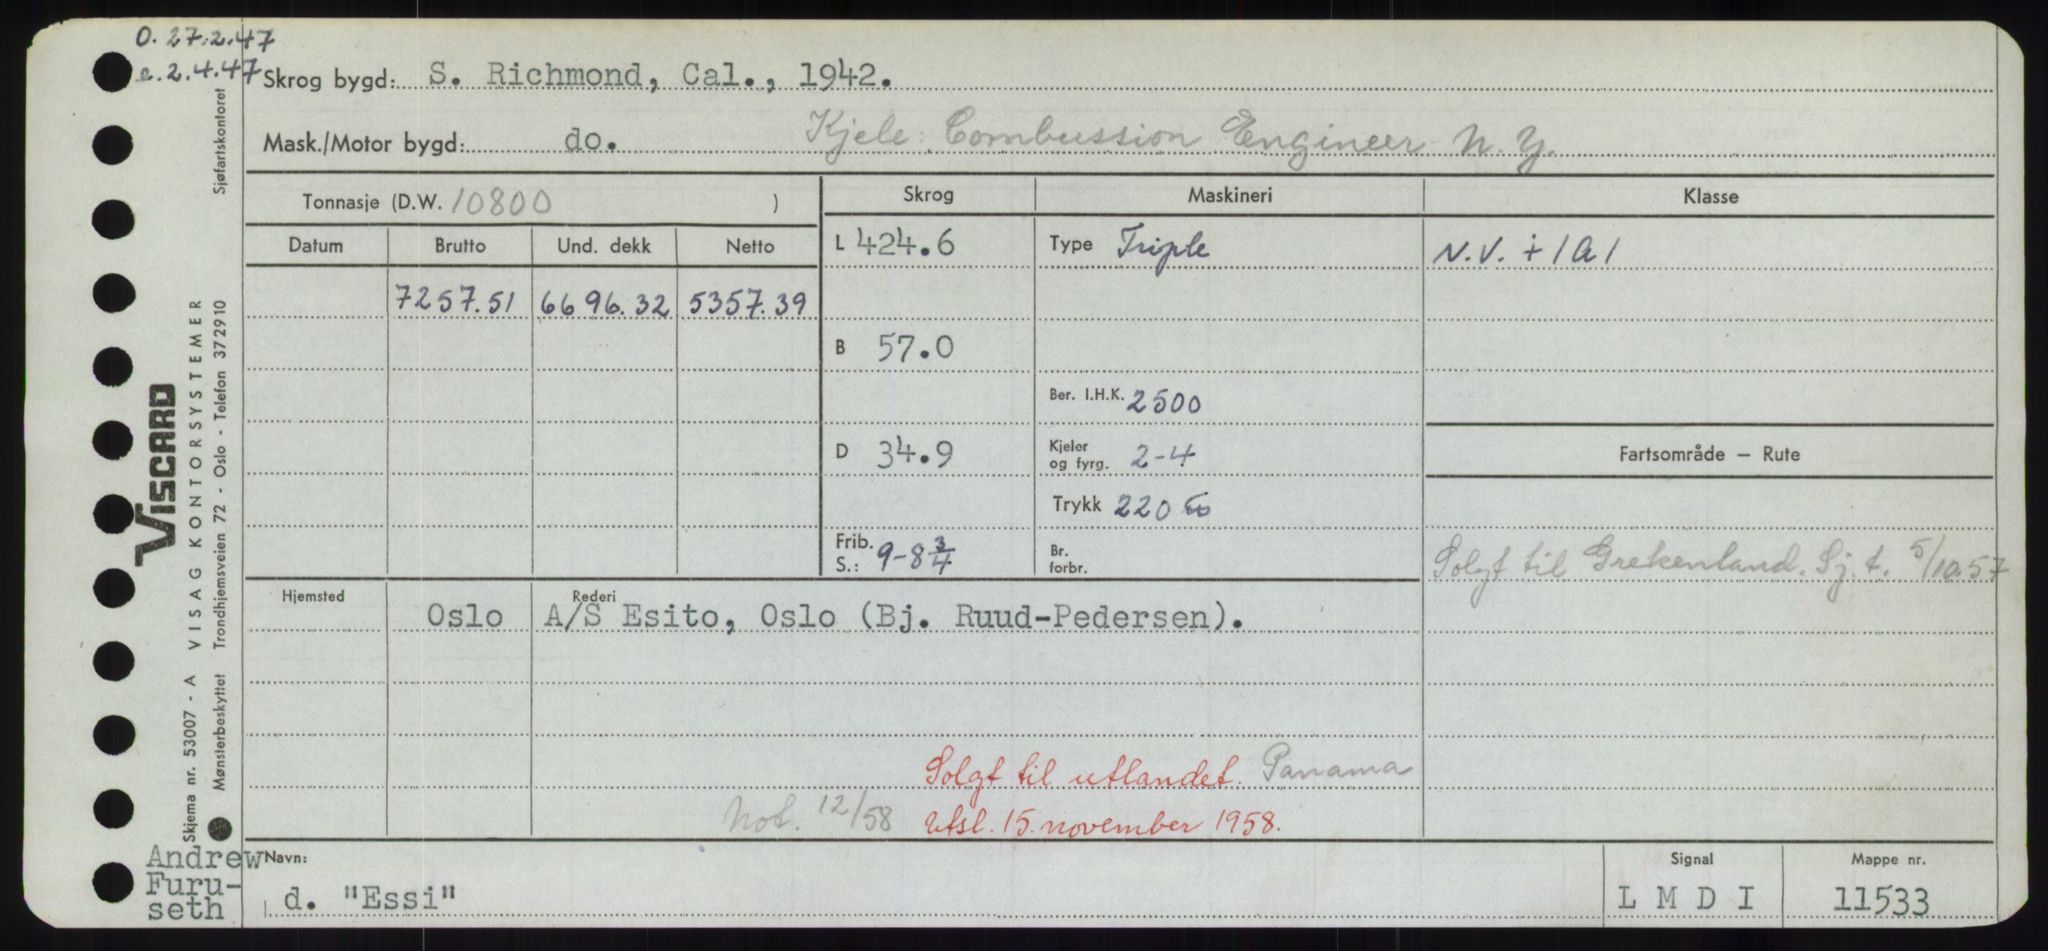 O. 27.2.47
a. 2.4.47
Skrog bygd: S. Richmond, Cal., 1942.
Mask./Motor bygd: do. Kjele: Combussion Engineer N.Y.
Tonnasje (D.W. 10800 ) Skrog Maskineri Klasse
Datum Brutto Und. dekk Netto L 424.6 Type Triple N.V. + 1A1
7257.51 6696.32 5357.39
B 57.0
Ber. I.H.K. 2500
D 34.9 Kjeler og fyrg. 2-4 Fartsområde — Rute
Trykk 220
Frib. S.: 9-8 3/4 Br. forbr. Solgt til Grekenland. Sj.t. 5/10.57
Hjemsted Rederi
Oslo A/S Esito, Oslo (Bj. Ruud-Pedersen).
Solgt til utlandet. Panama
Not. 12/58 Utsl. 15. november 1958.
Navn: Signal Mappe nr.
d. "Essi" L M D I 11533
Andrew
Furu-
seth
VISCARD
Skjema nr. 53007 - A VISAG KONTORSYSTEMER
Mønsterbeskyttet Trondhjemsveien 72 - Oslo - Telefon 372910 Sjøfartskontoret